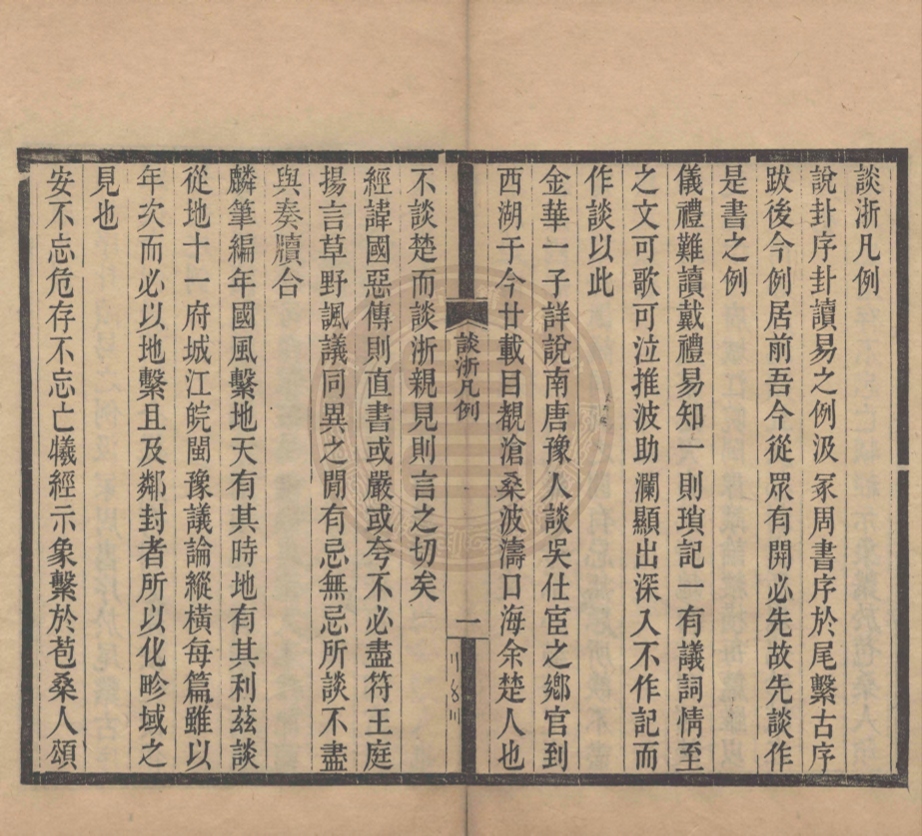 談浙凡例
說卦序卦讀易之例汲冢周書序於尾繫古序
跋後今例居前吾今從眾有開必先故先談作
是書之例
儀禮難讀戴禮易知一則瑣記一有議詞情至
之文可歌可泣推波助瀾顯出深入不作記而
作談以此
金華一子詳說南唐豫人談吳仕宦之鄉官到
西湖于今廿載目覩滄桑波濤口海余楚人也
談浙凡例
一
不談楚而談浙親見則言之切矣
經諱國惡傳則直書或嚴或夸不必盡符王庭
揚言草野諷議同異之閒有忌無忌所談不盡
與奏牘合
麟筆編年國風繫地天有其時地有其利茲談
從地十一府城江皖閩豫議論縱橫每篇雖以
年次而必以地繫且及鄰封者所以化畛域之
見也
安不忘危存不忘亡犧經示象繫於苞桑人頌